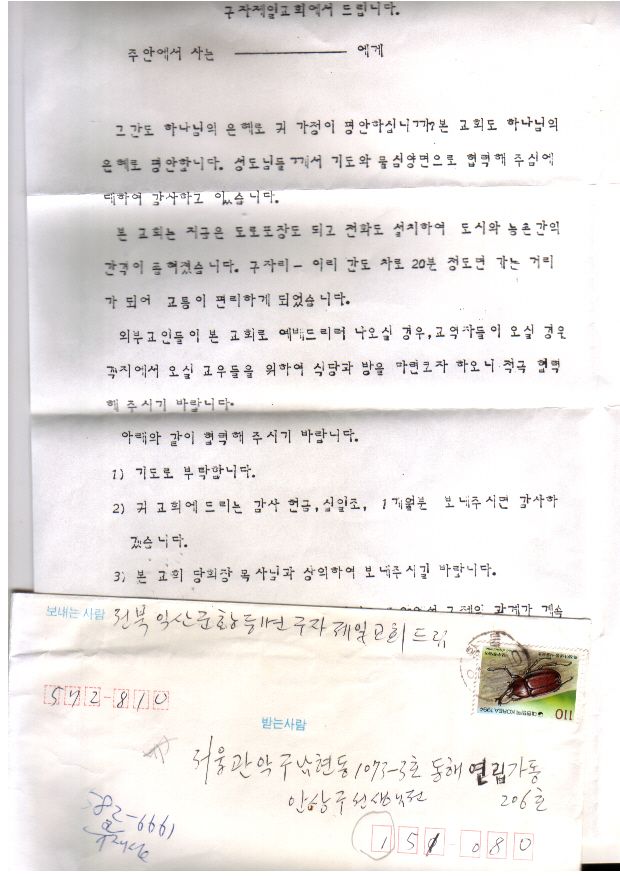 구자제일교회에서 드립니다.
주안에서 사는 ―――――― 에게
그간도 하나님의 은혜로 귀 가정이 평안하십니까? 본 교회도 하나님의
은혜로 평안합니다. 성도님들께서 기도와 물심양면으로 협력해 주심에
대하여 감사하고 있습니다.
본 교회는 지금은 도로포장도 되고 전화도 설치하여 도시와 농촌간의
간격이 좁혀졌습니다. 구자리- 이리 간도 차로 20분 정도면 갈는 거리
가 되어 교통이 편리하게 되었습니다.
외부교인들이 본 교회로 예배드리러 나오실 경우, 교역자들이 오실 경우
객지에서 오실 교우들을 위하여 식당과 방을 마련코자 하오니 적극 협력
해 주시기 바랍니다.
아래와 같이 협력해 주시기 바랍니다.
1) 기도로 부탁합니다.
2) 귀 교회에 드리는 감사 헌금, 십일조, 1개월분 보내주시면 감사하
겠습니다.
3) 본 교회 당회장 목사님과 상의하여 보내주시길 바랍니다.
보내는 사람 전북 익산군 황등면 구자제일교회 드림
대한민국 KOREA 1994
110
572-810
받는사람
서울 관악구 남현동 1073-3호 동해연립 가동
안상주 선생님전 206호
582-6661
151-080